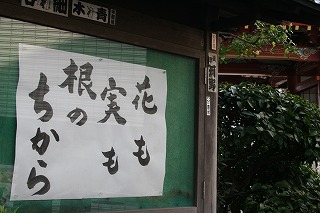 花も
実も
根の
ちから